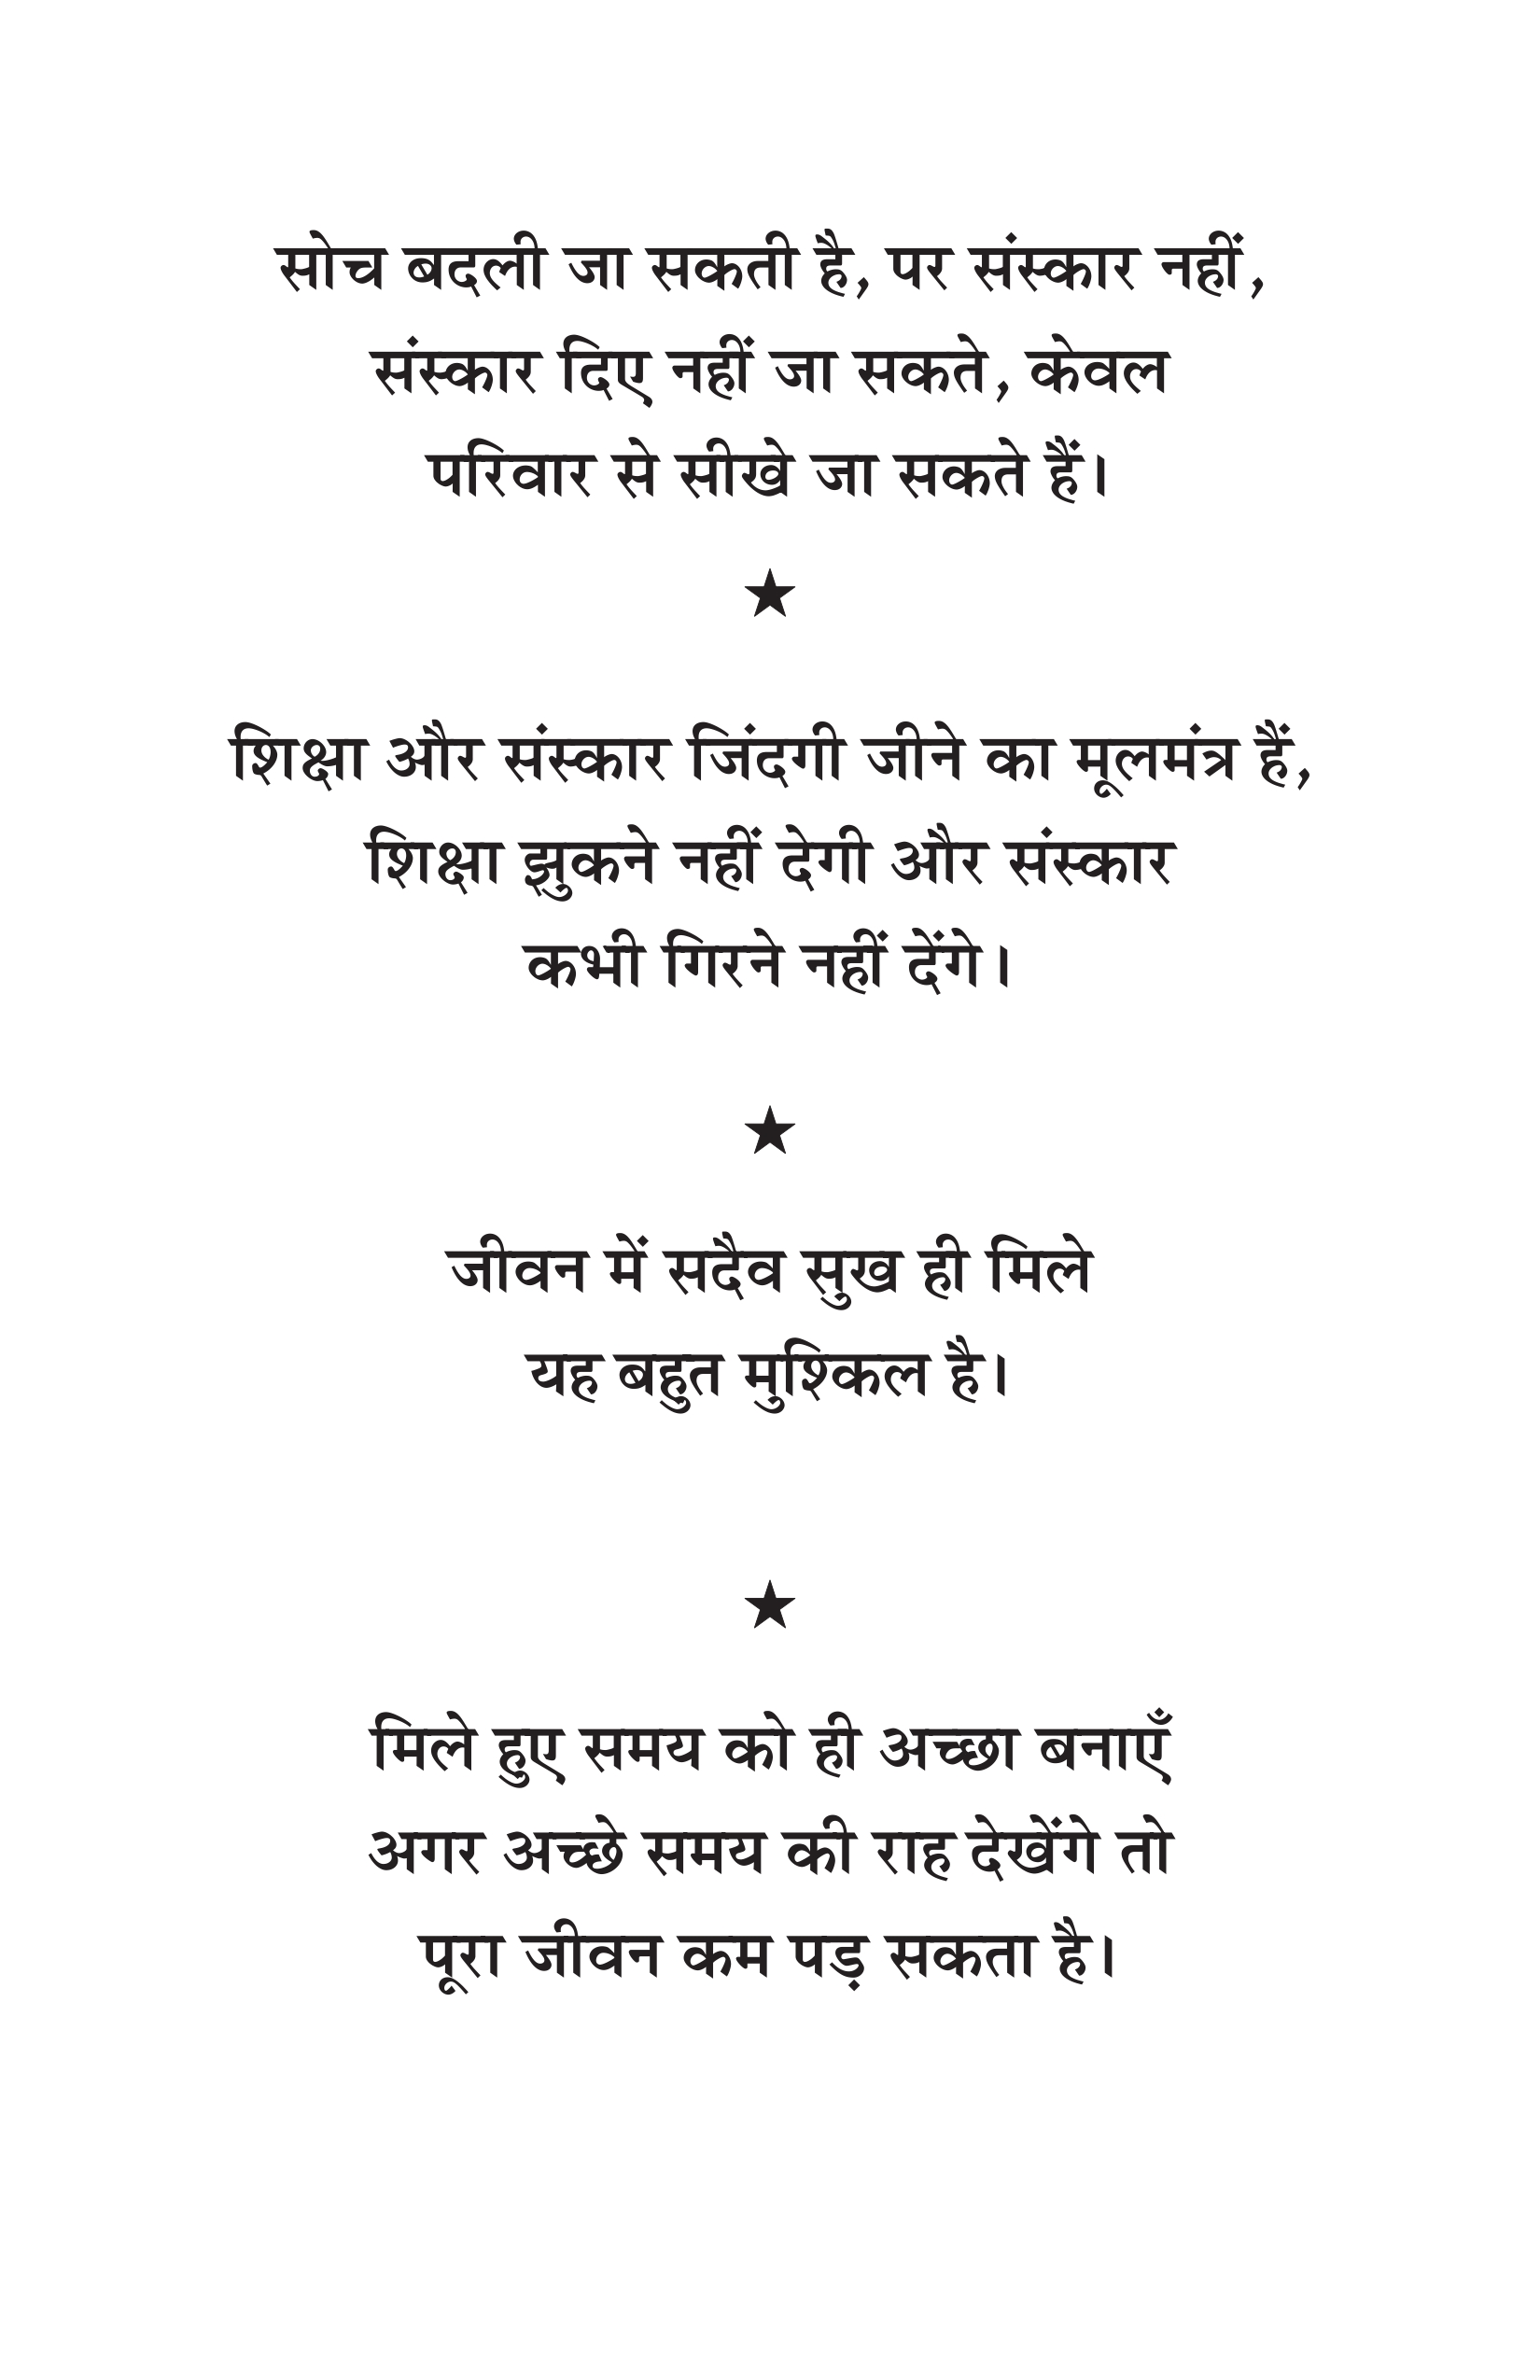 सोच बदली जा सकती है, पर संस्कार नहीं,
संस्कार दिए नहीं जा सकते, केवल
परिवार से सीखे जा सकते हैं।
★
शिक्षा और संस्कार जिंदगी जीने का मूलमंत्र हैं,
शिक्षा झुकने नहीं देगी और संस्कार
कभी गिरने नहीं देंगे।
★
जीवन में सदैव सुख ही मिले
यह बहुत मुश्किल है।
★
मिले हुए समय को ही अच्छा बनाएँ
अगर अच्छे समय की राह देखेंगे तो
पूरा जीवन कम पड़ सकता है।